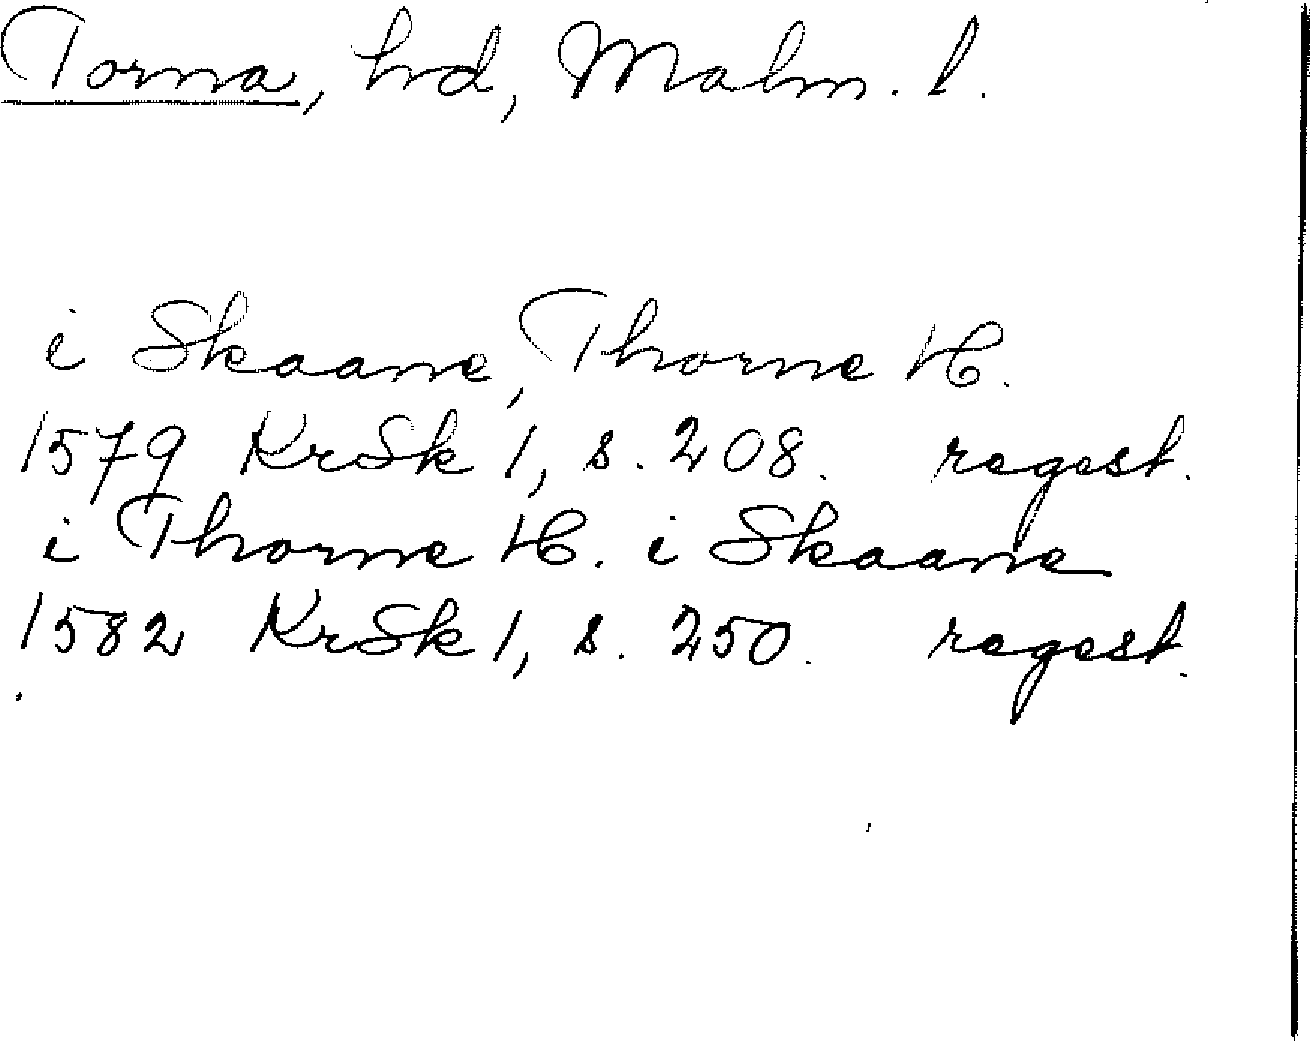 Torna, hrd, Malm. l.
i Skaane, Thorne H.
1579 KrSk 1, s. 208. regest.
i Thorne H. i Skaane
1582 KrSk 1, s. 250. regest.